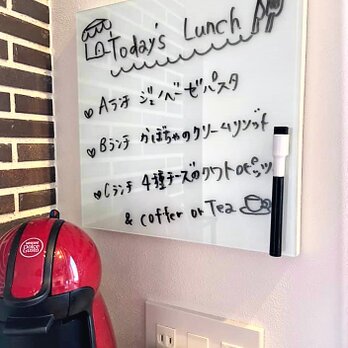 Today's Lunch
Aランチ ジェノベーゼパスタ
Bランチ かぼちゃのクリームリゾット
Cランチ 4種チーズのクワトロピッツァ
& coffee or Tea
NESCAFÉ
Dolce
Gusto